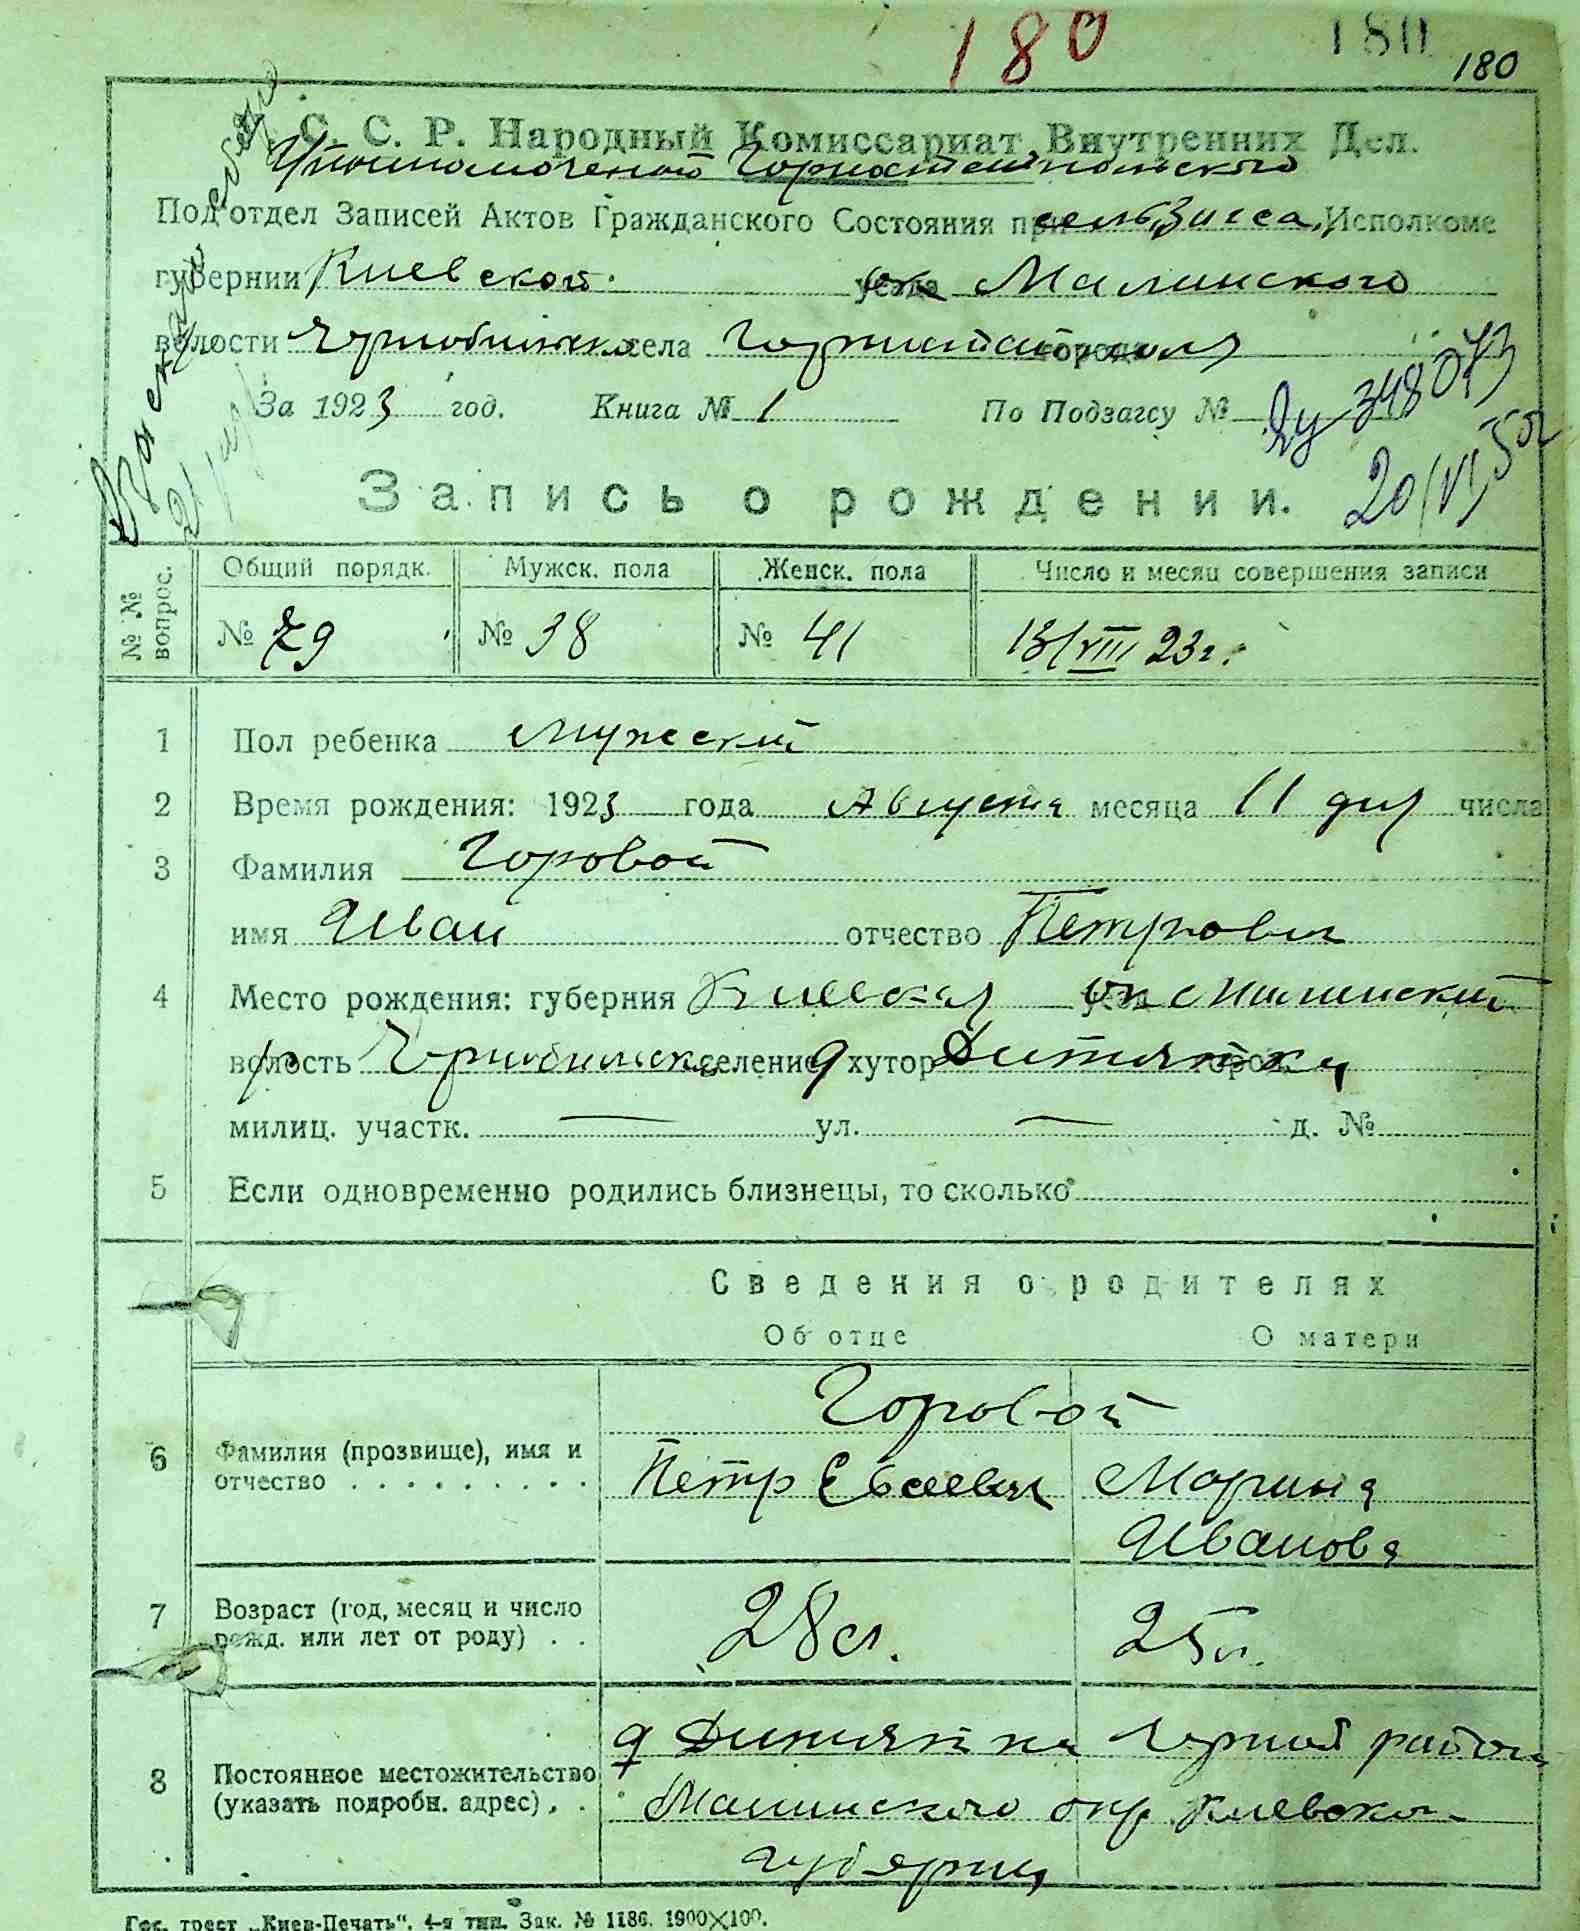 180 180 180
С. С. Р. Народный Комиссариат Внутренних Дел.
Уполномоченой Горностайпольского
Под'отдел Записей Актов Гражданского Состояния при сельзагса, Исполкоме
губернии Киевской. уезда ок Малинского
волости Чернобильско села Горностайполя города
За 1923 год. Книга № 1 По Подзагсу №
348073
20/VI 50
Запись о рождении.
№ № вопрос.
Общий порядк. Мужск. пола Женск. пола Число и месяц совершения записи
№ 79 № 38 № 41 13/VIII 23г.
1 Пол ребенка Мужеский
2 Время рождения: 1923 года Августа месяца 11 дня числа
3 Фамилия Горовой
имя Иван отчество Петрович
4 Место рождения: губерния Киевская уезд ок Малинский
р волость Чернобильск селение д хутор Дитятки город
милиц. участк. — ул. — д. №
5 Если одновременно родились близнецы, то сколько
Сведения о родителях
Об отце О матери
Горовой
6 Фамилия (прозвище), имя и Петр Евсеевич Марина
отчество . . . . . . . . . . Иванова
7 Возраст (год, месяц и число 28 л. 25 л.
рожд. или лет от роду) . .
д Дитятки Черноб района
8 Постоянное местожительство
(указать подробн. адрес) . . Малинского окр Киевско-
губернии
Гос. трест „Киев-Печать“. 4-я тип. Зак. № 1186. 1900×100.